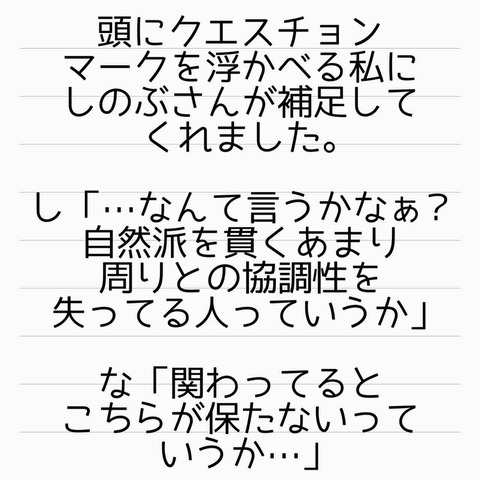 頭にクエスチョン
マークを浮かべる私に
しのぶさんが補足して
くれました。
し「…なんて言うかなぁ?
自然派を貫くあまり
周りとの協調性を
失ってる人っていうか」
な「関わってると
こちらが保たないって
いうか…」